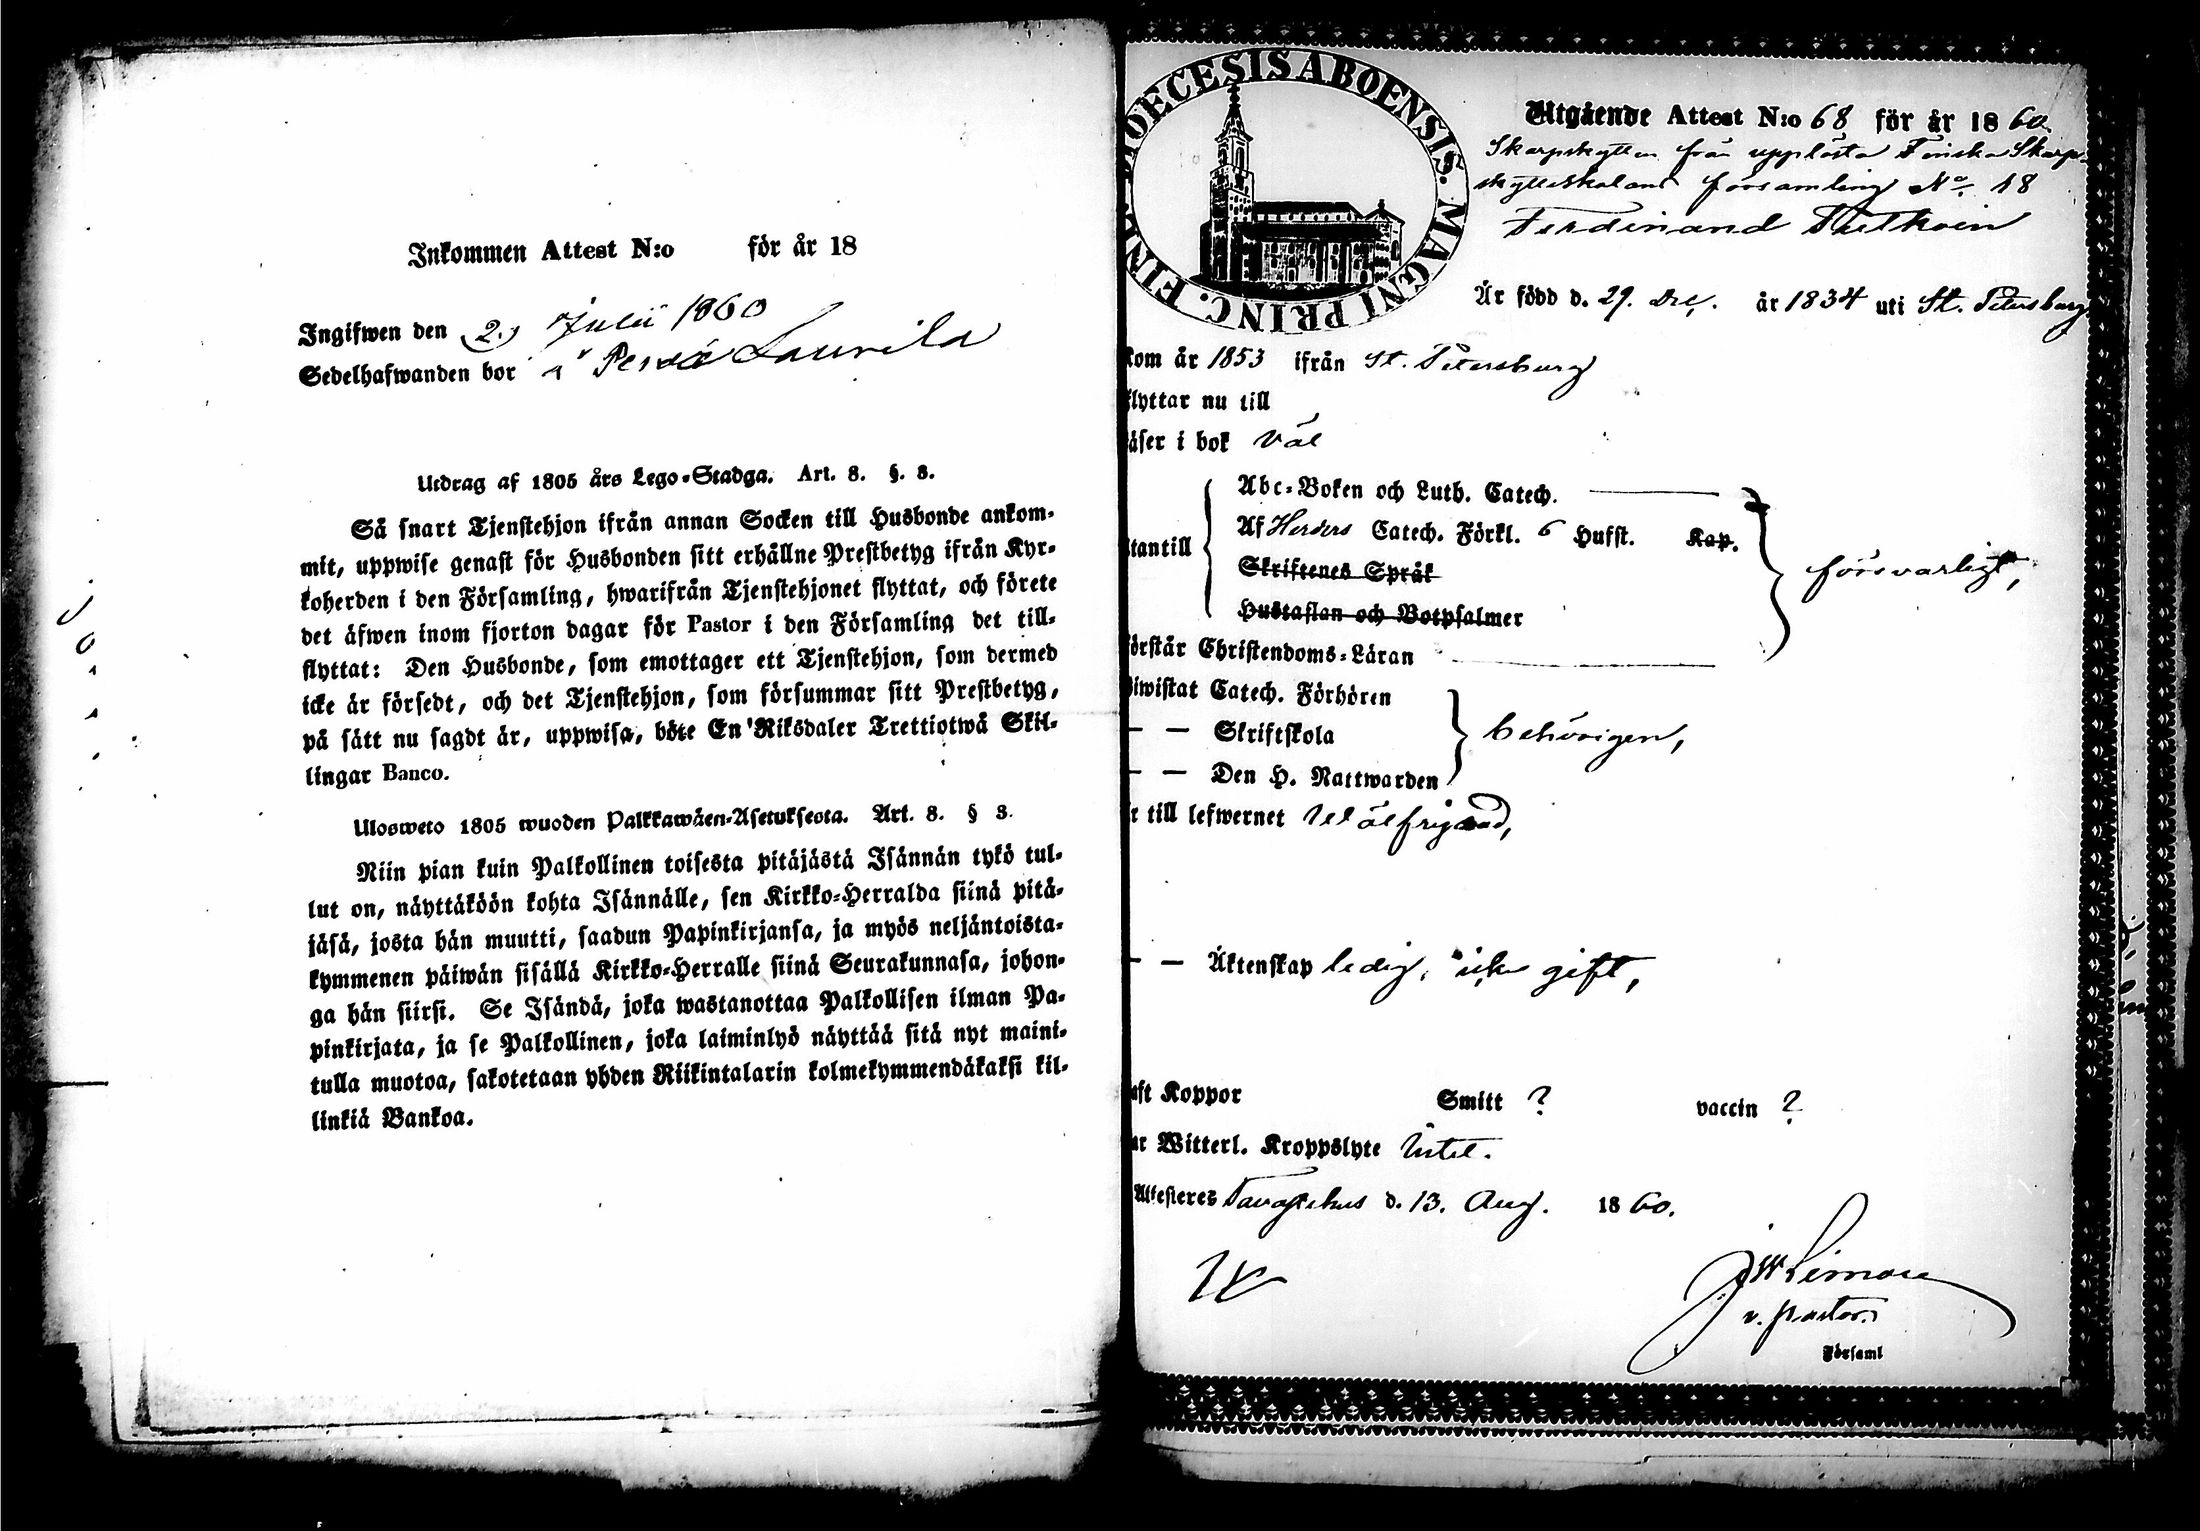 Inkommen Attest N:o för år 18
Ingifwen den 2. Julii 1860
Sedelhafwanden bor å Laurila
Utdrag af 1805 års Lego-Stadga. Art. 8. §. 3.
Så snart Tjenstehjon ifrån annan Socken till Husbonde ankom-
mit, uppwise genast för Husbonden sitt erhållne Prestbetyg ifrån Kyr-
koherden i den Församling, hwarifrån Tjenstehjonet flyttat, och förete
det äfwen inom fjorton dagar för Pastor i den Församling det till-
flyttat: Den Husbonde, som emottager ett Tjenstehjon, som dermed
icke är försedt, och det Tjenstehjon, som försummar sitt Prestbetyg,
på sätt nu sagdt är, uppwisa, böte En Riksdaler Trettiotwå Skil-
lingar Banco.
Ulosweto 1805 wuoden Palkkawäen-Asetuksesta. Art. 8. § 3.
Niin pian kuin Palkollinen toisesta pitäjästä Isännän tykö tul-
lut on, näyttäköön kohta Isännälle, sen Kirkko-Herralda siinä pitä-
jäsä, josta hän muutti, saadun Papinkirjansa, ja myös neljäntoista-
kymmenen päiwän sisällä Kirkko-Herralle siinä Seurakunnasa, johon-
ga hän siirsi. Se Isändä, joka wastanottaa Palkollisen ilman Pa-
pinkirjata, ja se Palkollinen, joka laiminlyö näyttää sitä nyt maini-
tulla muotoa, sakotetaan yhden Riikintalarin kolmekymmendäkaksi kil-
linkiä Bankoa.
DIOECESIS ABOENSIS. MAGNI PRINC. FINL.
Utgående Attest N:o 68 för år 1860.
Skarpskytten från upplösta Finska Skarp-
skytteskolans församling No. 18
Ferdinand
Är född d. 29. Dec. år 1834 uti St. Petersburg
kom år 1853 ifrån St. Petersburg
flyttar nu till
läser i bok väl
Abc-Boken och Luth. Catech.
utantill Af Herders Catech. Förkl. 6 Hufst. Kap. försvarligt,
Skriftenes Språk
Hustaflan och Botpsalmer
förstår Christendoms-Läran
biwistat Catech. Förhören
— — Skriftskola behörigen,
— — Den H. Nattwarden
är till lefwernet välfrägdad,
— — Äktenskap ledig, icke gift,
haft Koppor Smitt ? vaccin ?
har Witterl. Kroppslyte intet.
Attesteres Tavastehus d. 13. Aug. 1860.
v. pastor.
Församl